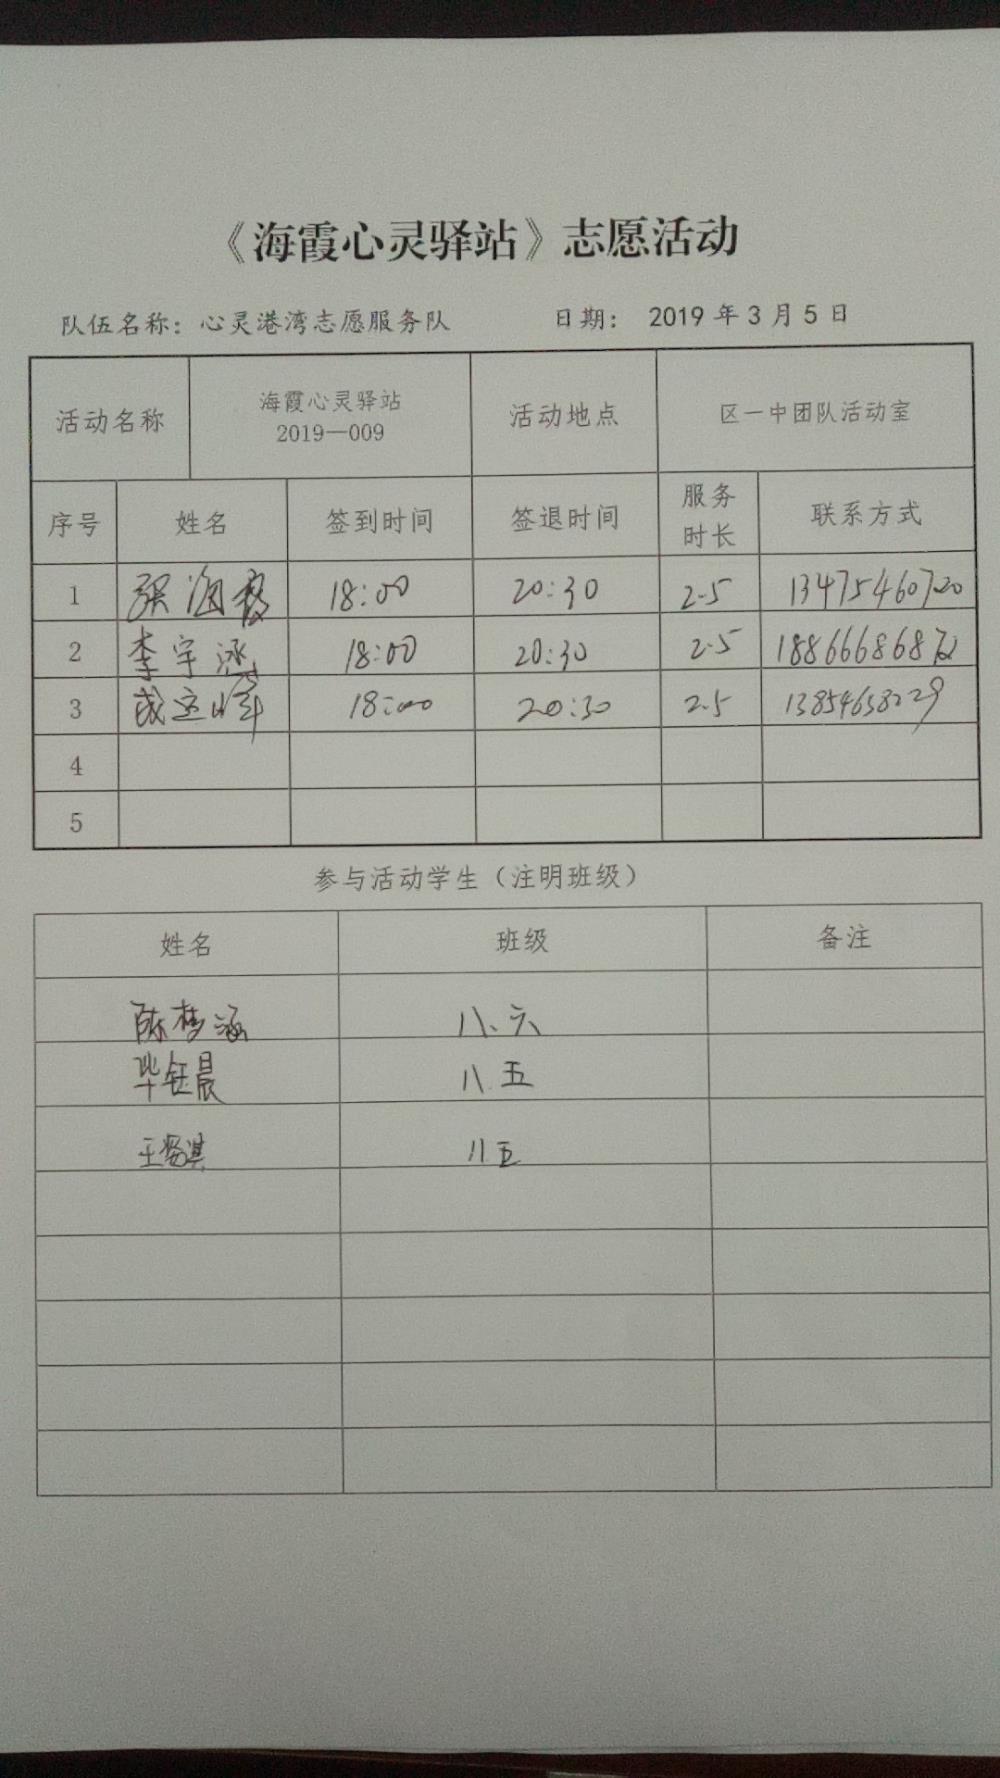 《海霞心灵驿站》志愿活动
队伍名称：心灵港湾志愿服务队 日期： 2019 年 3 月 5 日
活动名称 海霞心灵驿站 2019—009 活动地点 区一中团队活动室
序号 姓名 签到时间 签退时间 服务时长 联系方式
1 张海霞 18:00 20:30 2.5 13475460720
2 李宇涵 18:00 20:30 2.5
3 成运峰 18:00 20:30 2.5 13854638229
4
5
参与活动学生（注明班级）
姓名 班级 备注
陈梦涵 八、六
毕钰晨 八.五
八五